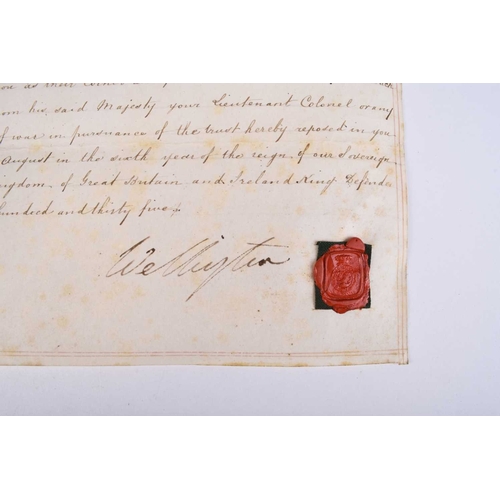 as their
him his said Majesty your Lieutenant Colonel or any
of war in pursuance of the trust hereby reposed in you
August in the sixth year of the reign of our Sovereign
ingdom of Great Britain and Ireland King Defender
hundred and thirty five
Wellington